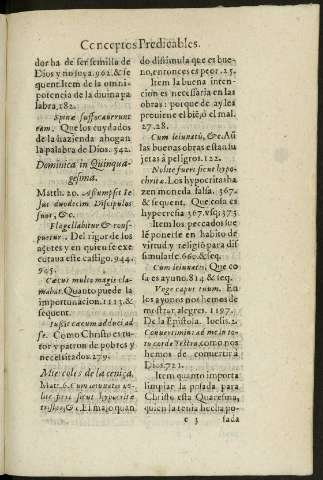 Conceptos Predicables.
dor ha de ser semilla de
Dios y no suya. 962. & se
quent. Item de la omni-
potencia de la diuina pa
labra, 182.
Spinæ suffocauerunt
eam. Que los cuydados
de la hazienda ahogan
la palabra de Dios. 542.
Dominica in Quinqua-
gesima.
Matth. 20. Assumpsit Ie
sus duodecim Discipulos
suos, &c.
Flagellabitur & cons-
puetur. Del rigor de los
açotes, y en quien se exe
cutaua este castigo. 944.
945.
Cæcus multo magis cla-
mabat. Quanto puede la
importunacion. 1113. &
sequent.
Iussit cæcum adduci ad
se. Como Christo es tu-
tor y patron de pobres y
necessitados. 279.
Miercoles de la ceniza.
Matt. 6. Cum ieiunatis no-
lite fieri sicut hypocritæ
tristes, &c. El malo quan
do dissimula que es bue-
no, entonces es peor. 25.
Item la buena inten-
cion es necessaria en las
obras: porque de ay les
prouiene el biẽ, o el mal
27. 28.
Cum ieiunatis, &c. Aũ
las buenas obras estan su
jetas à peligros. 122.
Nolite fieri sicut hypo-
critæ. Los hypocritas ha
zen moneda falsa. 367.
& sequent. Que cosa es
hypocresia 367. vsq; 375
Item los peccados sue
lẽ ponerse en habito de
virtud y religiõ para dis-
simularse. 660. & seq.
Cum ieiunatis, Que co
sa es ayuno. 814 & seq.
Vnge caput tuum. En
los ayunos nos hemos de
mostrar alegres. 1197.
De la Epistola. Ioelis. 2.
Conuertimini ad me in to-
to corde vestro, como nos
hemos de conuertir à
Dios. 721.
Item quanto importa
limpiar la posada, para
Christo esta Quaresma,
quien la tenia hecha po-
c 3 sada